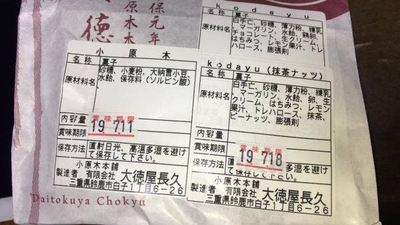 保元年
原木
徳
kodayu
名称 菓子
原材料名 白手亡、砂糖、薄力粉、練乳
、マーガリン、水飴、鶏卵、
チョコレート、生クリーム、
はちみつ、レモン果汁、トレ
ハロース、膨張剤
小原木
名称 菓子
原材料名 砂糖、小麦粉、大納言小豆、
水飴、保存料(ソルビン酸)
内容量
賞味期限
賞味期限 19 7.11
保存方法 直射日光、高温多湿を避け
て保存して下さい。
小原木本舗
製造者 有限会社 大徳屋長久
三重県鈴鹿市白子1丁目6-26
kodayu(抹茶ナッツ)
名称 菓子
原材料名 白手亡、砂糖、薄力粉、練乳
、マーガリン、水飴、卵、生
クリーム、はちみつ、レモン
果汁、トレハロース、抹茶、
ピーナッツ、膨張剤
内容量
賞味期限
賞味期限 19 7.18
保存方法 直射日光、高温多湿を避け
て保存して下さい。
小原木本舗
製造者 有限会社 大徳屋長久
三重県鈴鹿市白子1丁目6-26
Daitokuya Chokyu